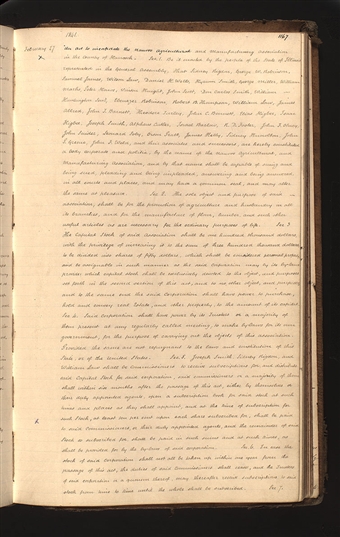 1841.
1167
February 27
X
An Act to incorporate the Nauvoo Agricultural and Manufacturing Association
in the County of Hancock. Sec. 1. Be it enacted by the people of the State of Illinois
represented in the General Assembly, That Sidney Rigdon, George W. Robinson,
Samuel James, Wilson Law, Daniel H. Wells, Hyrum Smith, George Miller, William
Marks, Peter Haws, Vinson Knight, John Scott, Don Carlos Smith, William
Huntington Sen., Ebenezer Robinson, Robert B. Thompson, William Law, James
Allred, John T. Barnett, Theodore Turley, John C. Bennett, Elias Higbee, Isaac
Higbee, Joseph Smith, Alpheus Cutler, Israel
R. D. Foster, John
John Snider, Leonard Soby, Orson Pratt, James Kelly, Sidney Knowlton, John
P. Greene, John F. Weld, and their associates and successors, are hereby constituted
a body corporate and politic, by the name of the Nauvoo Agricultural and
Manufacturing Association, and by that name shall be capable of suing and
being sued, pleading and being impleaded, answering and being answered
in all courts and places, and may have a common seal, and may alter
the same at pleasure. Sec. 2. The sole object and purpose of said
association, shall be for the promotion of agriculture and husbandry in all
its branches, and for the manufacture of flour, lumber, and such other
useful articles as are necessary for the ordinary purposes of life. Sec. 3.
The Capital Stock of said Association shall be one hundred thousand dollars
with the privilege of increasing it to the sum of three hundred thousand dollars
to be divided into shares of fifty dollars, which shall be considered personal property,
and be assignable in such manner as the said Corporation may by its by-laws
provide which capital stock shall be exclusively devoted to the object and purposes
set forth in the second section of this act, and to no other object, and purposes
and to the same ends the said Corporation shall have power to purchase,
hold and convey real Estate, and other property, to the amount of its capital.
Sec 4. Said Corporation shall have power by its Trustees or a majority of
them present at any regularly called meeting, to make by-laws for its own
government, for the purpose of carrying out the objects of this association:
Provided, the same are not repugnant to the laws and constitution of this
State or of the United States. Sec. 5. Joseph Smith, Sidney Rigdon, and
William Law shall be Commissioners to receive subscriptions for, and distribute
said Capital Stock for said Corporation, said commissioners or a majority of them
shall within six months after the passage of this act, either by themselves or
their duly appointed agents, open a subscription book for said Stock at such
times and places as they shall appoint, and at the time of subscription for
such Stock, at least ten per cent upon each share subscribed for, shall be paid
to said Commissioners, or their duly appointed agents, and the remainder of said
Stock so subscribed for shall be paid in such sums and at such times, as
shall be provided for by the by-laws of said corporation. Sec. 6. In case the
stock of said corporation shall not all be taken up within one year from the
passage of this act, the duties of said Commissioners shall cease, and the Trustees
of said corporation or a quorum thereof, may thereafter receive subscriptions to said
stock from time to time until the whole shall be subscribed. Sec. 7.